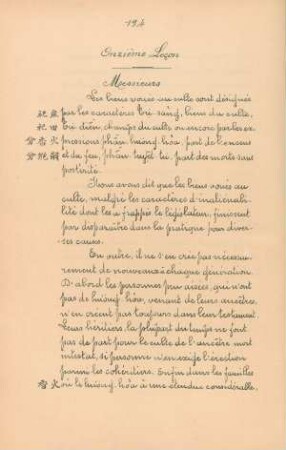 194
Onzième Leçon
Messieurs
Les biens voués au culte sont désignés
par les caractères tri sâng, biens du culte,
tri diên, champs du culte ou encore par les ex
pressions phân huong hôa, part de l'encens
et du feu, phân tuyêt tu, part des morts sans
postérité.
Nous avons dit que les biens voués au
culte, malgré les caractères d'inaliénabi
lité dont les a frappés le législateur, finissent
par disparaître dans la pratique pour diver
ses causes.
En outre, il ne s'en crée pas nécessai
rement de nouveaux à chaque génération
D'abord les personnes peu aisées, qui n'ont
pas de huong hôa, venant de leurs ancêtres,
n'en créent pas toujours dans leur testament.
Leurs héritiers, la plupart du temps ne font
pas de part pour le culte de l'ancêtre mort
intestat, si personne n'en exige l'érection
parmi les cohéritiers. Enfin dans les familles
où le huong hôa a une étendue considérable,
祀
祀 田
香 火
香 火